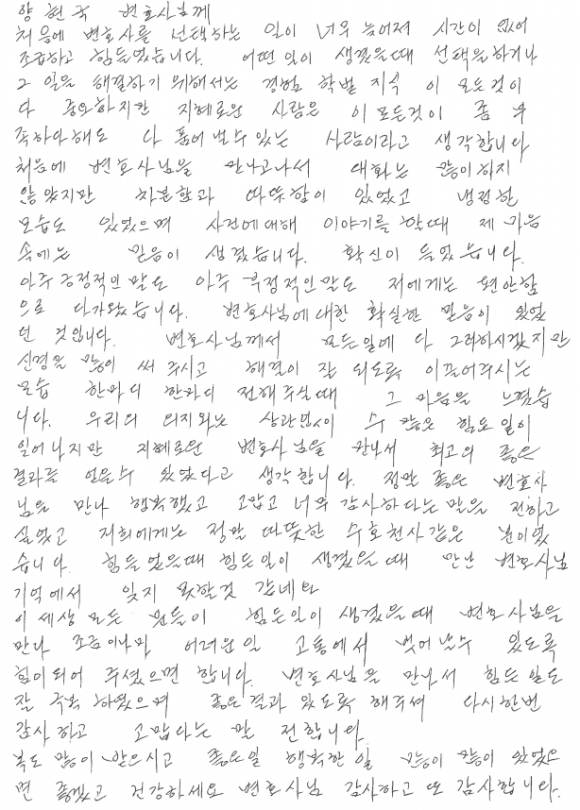 양현국 변호사님께
처음에 변호사를 선택하는 일이 너무 늦어져 시간이 없어
조급하고 힘들었습니다. 어떤일이 생겼을때 선택을하거나
그 일을 해결하기 위해서는 경험 학벌 지식 이 모든것이
다 중요하지만 지혜로운 사람은 이모든것이 좀 부
족하다해도 다 풀어 낼수있는 사람이라고 생각합니다
처음에 변호사님을 만나고나서 대화는 많이하지
않았지만 차분함과 따뜻함이 있었고 냉정한
모습도 있었으며 사건에대해 이야기를 할때 제 마음
속에는 믿음이 생겼습니다. 확신이 들었습니다.
아주 긍정적인말도 아주 부정적인말도 저에게는 편안함
으로 다가왔습니다. 변호사님에대한 확실한 믿음이 있었
던 것입니다. 변호사님께서 모든일에 다 그러하시겠지만
신경을 많이 써 주시고 해결이 잘 되도록 이끌어주시는
모습 한마디 한마디 전해주실때 그 마음을 느꼈습
니다. 우리의 의지와는 상관없이 수 많은 힘든일이
일어나지만 지혜로운 변호사님을 만나서 최고의 좋은
결과를 얻을수 있었다고 생각합니다. 정말 좋은 변호사
님을 만나 행복했고 고맙고 너무 감사하다는 말을 전하고
싶었고 저희에게는 정말 따뜻한 수호천사같은 분이였
습니다. 힘들었을때 힘든일이 생겼을때 만난 변호사님
기억에서 잊지 못할것 같네요
이 세상 모든 분들이 힘든일이 생겼을때 변호사님을
만나 조금이나마 어려운일 고통에서 벗어날수 있도록
힘이되어 주셨으면 합니다. 변호사님을 만나서 힘든일도
잘 극복 하였으며 좋은결과 있도록 해주셔 다시한번
감사하고 고맙다는 말 전합니다
복도 많이 받으시고 좋은일 행복한일 많이많이 있었으
면 좋겠고 건강하세요 변호사님 감사하고 또 감사합니다.